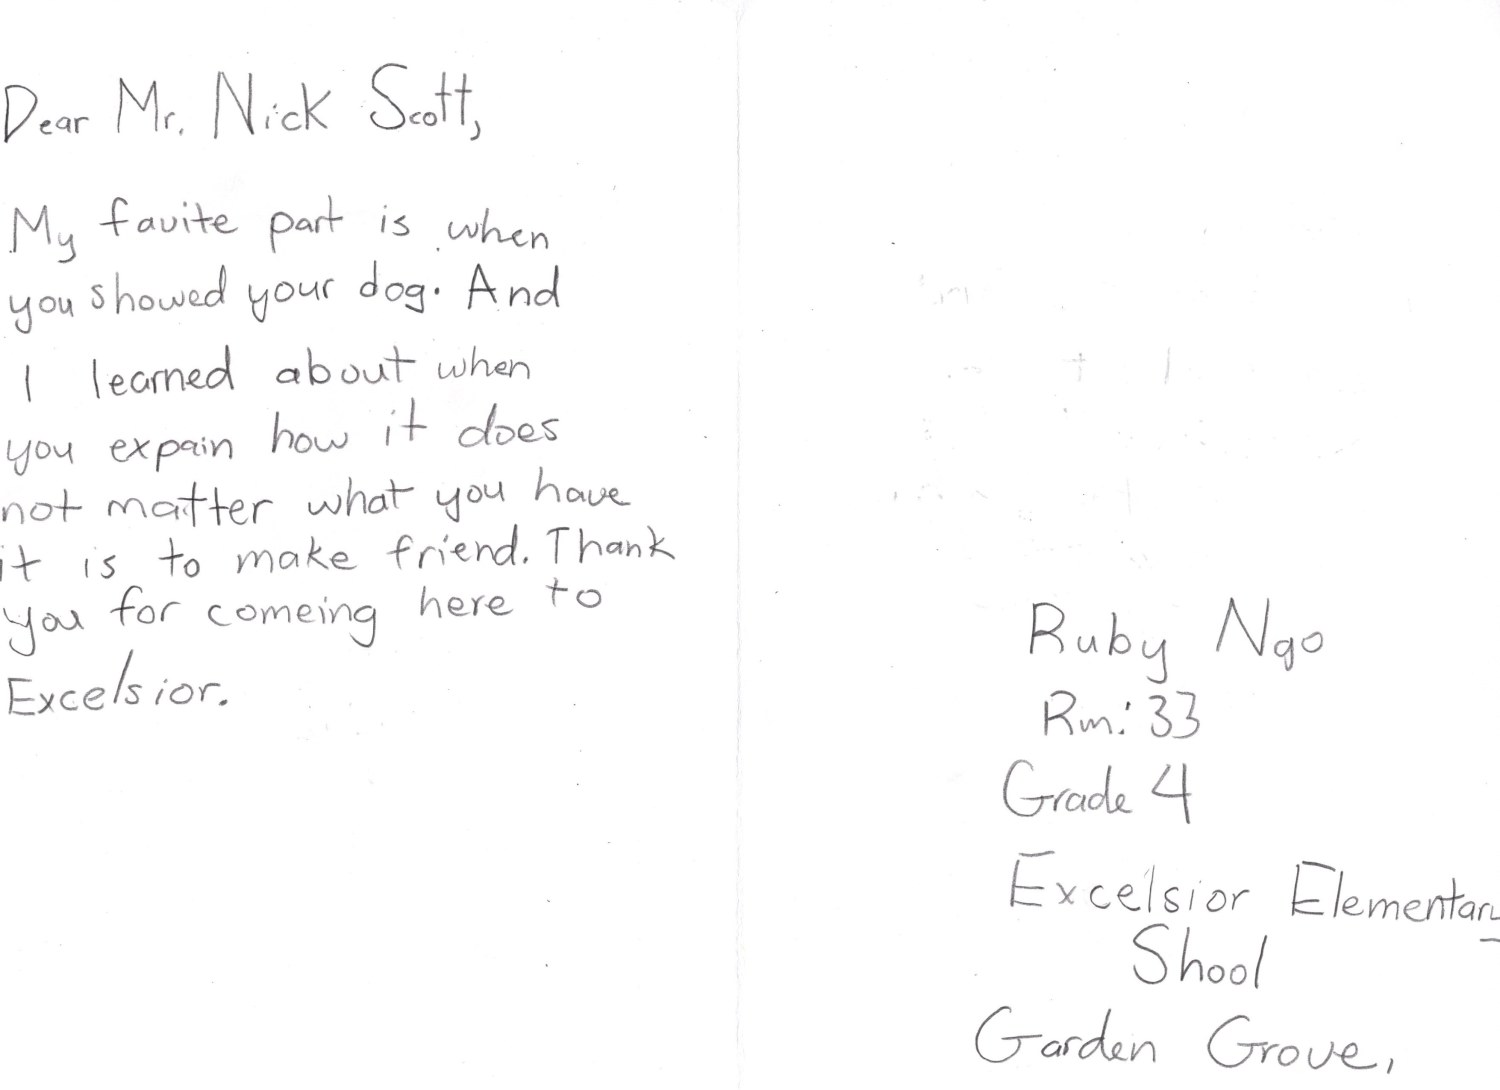 Dear Mr. Nick Scott,
My favite part is when
you showed your dog. And
I learned about when
you expain how it does
not matter what you have
it is to make friend. Thank
you for comeing here to
Excelsior.
Ruby Ngo
Rm: 33
Grade 4
Excelsior Elementary
Shool
Garden Grove,